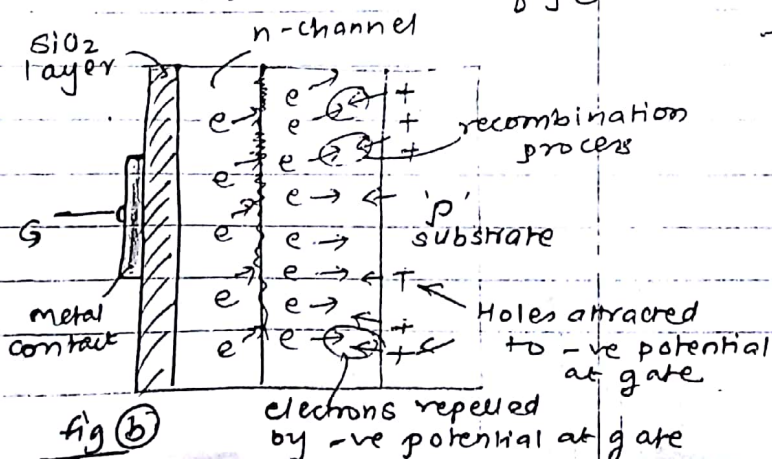 n-channel
SiO2
layer
e e +
e e +
e e + recombination
process
e e
e e 'p'
substrate
G
e e +
metal
contact
e e + Holes attracted
to -ve potential
at gate
e e +
electrons repelled
by -ve potential at gate
fig (b)